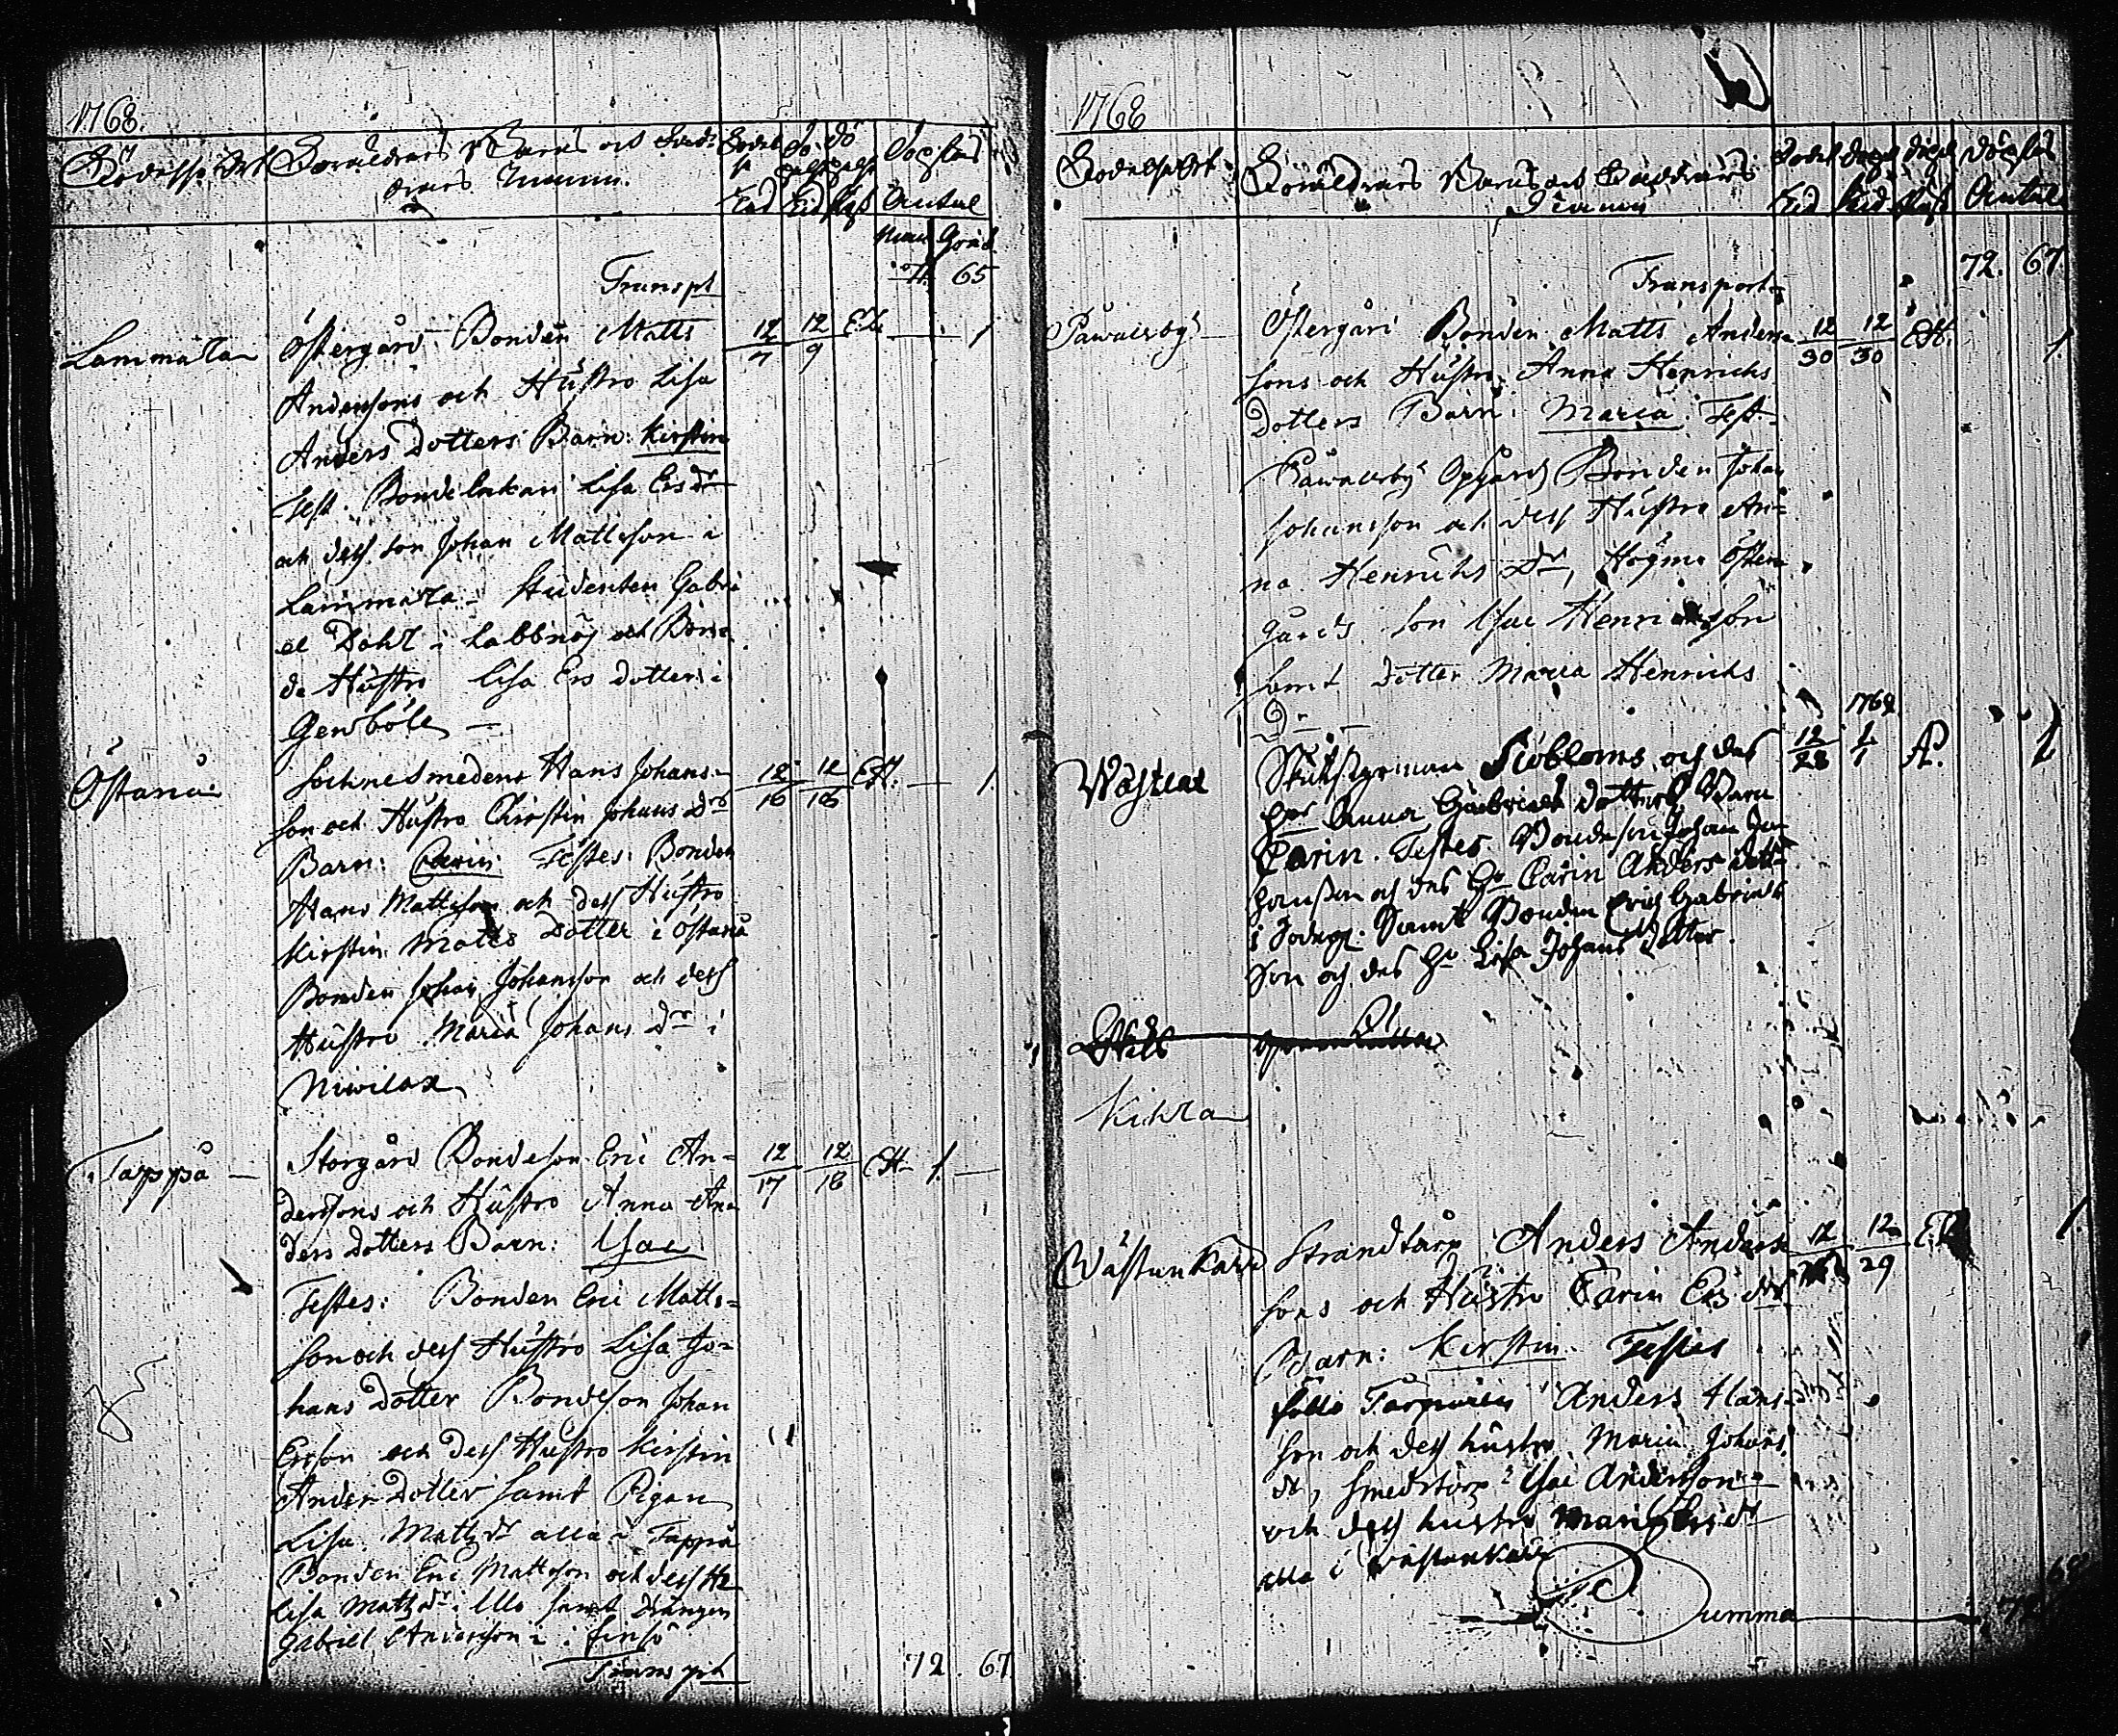 1768.
Födelse Ort
Föräldrars Barns och Fad-
drars Namn.
Födel
se
Tid
Döpelse
Tid
Döpelse
Antal
Transpt 71. 65
Lammala
Östergård Bonden Matts 12/7 12/9 1
Anderssons och Hustro Lisa
Anders Dotters Barn: Kirstin
Test. Bonde Enkan Lisa Ersdr
och dess Son Johan Mattsson i
Lammala Studenten Gabri
el Dahl i Labbnäs och Bon
de Hustro Lisa Ers dotter i
Genböle
Östanå
Sockne Smedens Hans Johans- 12/16 12/18 EH. 1.
son och Hustro Chirstin Johans Dr
Barn: Carin: Testes: Bonden
Hans Mattsson och dess Hustro
Kirstin Matts Dotter i Östanå
Bonden Johan Johansson och dess
Hustro Maria Johans Dr i
Niwilax
Tappå
Storgård Bondeson Eric An- 12/17 12/18 EH 1.
derssons och Hustro Anna An
ders dotters Barn: Isac
Testes: Bonden Eric Matts-
son och dess Hustro Lisa Jo-
hans Dotter Bondeson Johan
Ersson och dess Hustro Kirstin
Anders Dotter samt Pigan
Lisa Matts dr alla i Tappå
Bonden Eric Mattsson och dess H
Lisa Matts dr i Illo samt Drängen
Gabriel Andersson i Finsö
Transpt 72. 67.
1768
Födelse Ort
Föräldrars Barns och Faddrars
Namn
Födel
Tid
Döpel
Tid
Döpelse
Antal
72. 67.
Transport
Påwalsby
Östergård Bonden Matts Anders 12/30 12/30 EH. 1.
sons och Hustro Anna Henrichs
Dotters Barn: Maria Test
Påwalsby Opgård Bonden Johan
Johansson och dess Hustro An-
na Henrichs Dr, Högmo Öster
gårds Son Isac Henricsson
samt Dotter Maria Henrichs
Dr
1769
12/28 1/1 1
Siöbloms och des
Hr Anna Gabriels dotters Barn
Carin. Testes. Bondeson Johan Jo-
hansson och des Hu Carin Anders dott
i samt Bonden Erich Gabriels
Son och des Hu Lisa Johans dotter.
Wästankärr
Strandtorp Anders Anders 12/ 12/29 1.
sons och Hustro Carin Ers dr
Barn: Kirstin. Testes
Anders Hans-
son och dess hustro Maria Johans
dr, Smedstorp Isac Andersson
och dess hustro Maria Ers dr
alla i Wästankärr
Summa